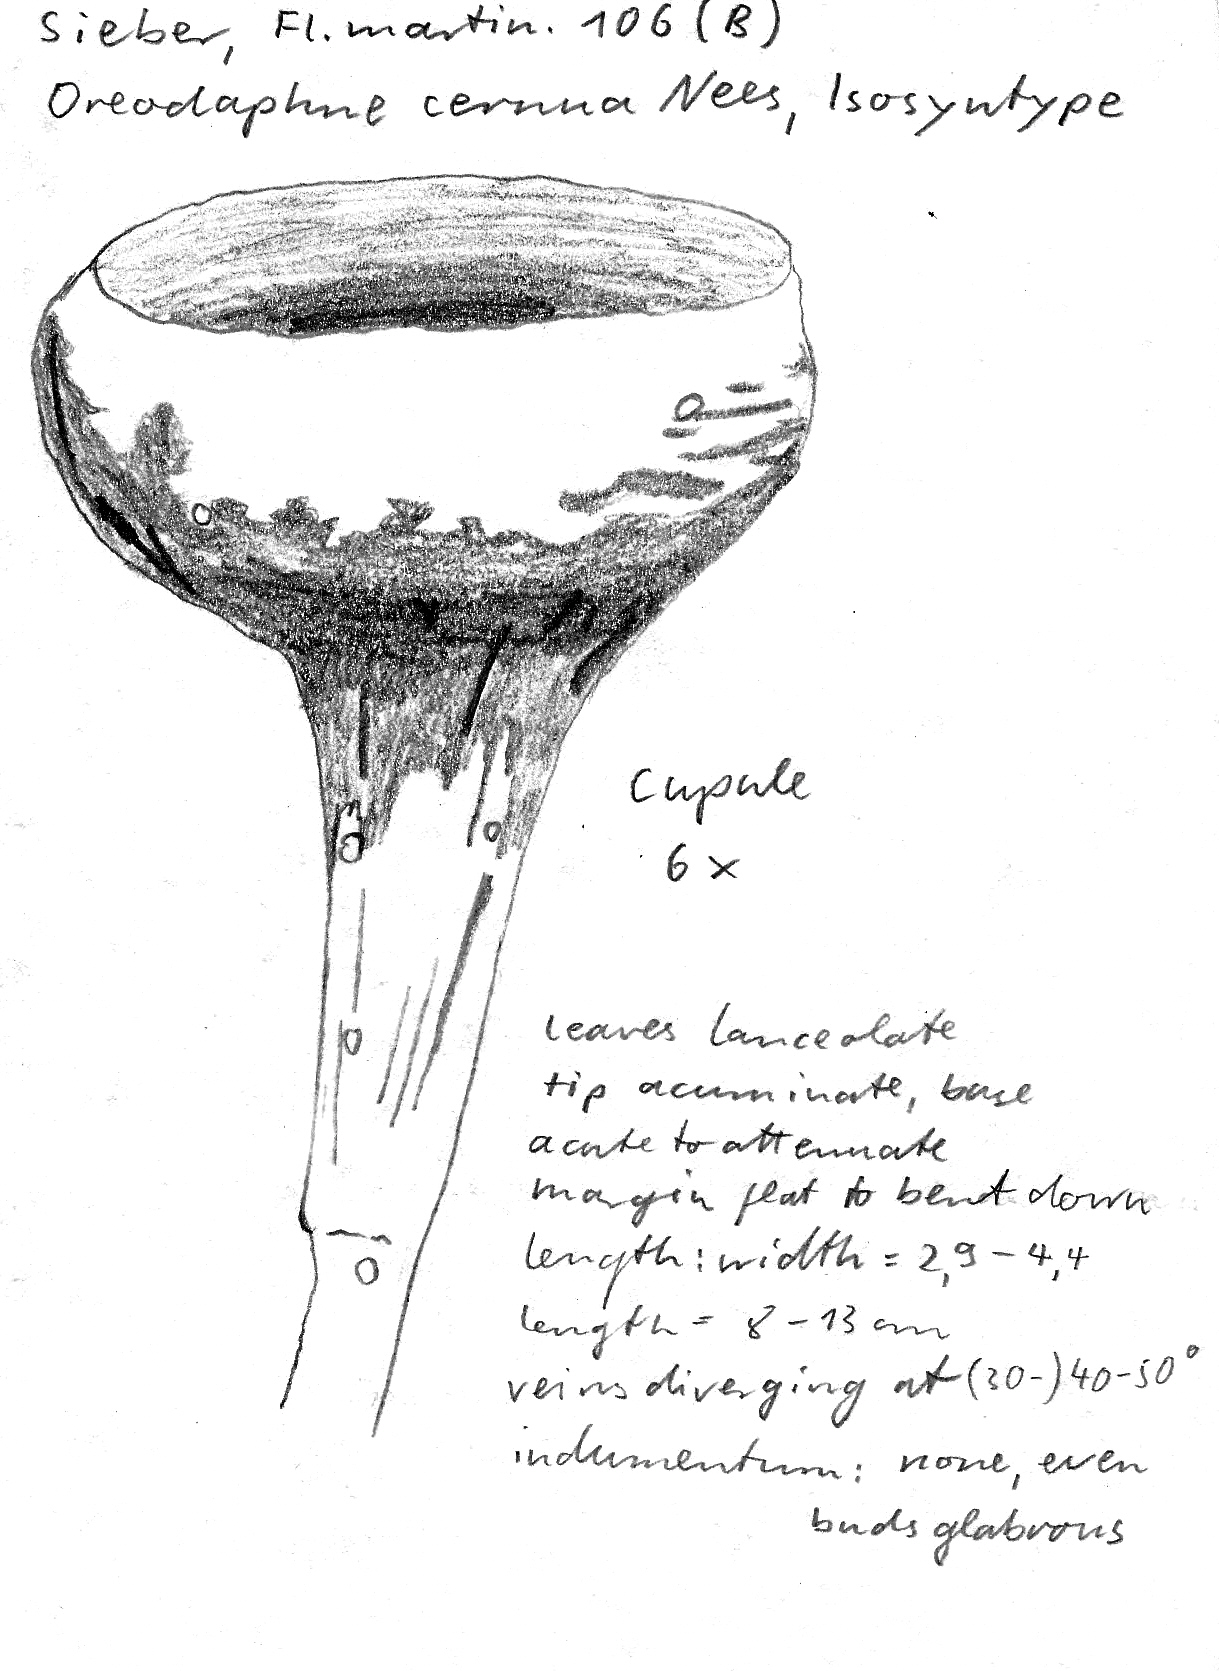 Sieber, Fl. martin. 106 (B)
Oreodaphne cernua Nees, Isosyntype
Cupule
6 x
leaves lanceolate
tip acuminate, base
acute to attenuate
margin flat to bent down
length : width = 2,9 - 4,4
length = 8 - 13 cm
veins diverging at (30-) 40-50°
indumentum: none, even
buds glabrous